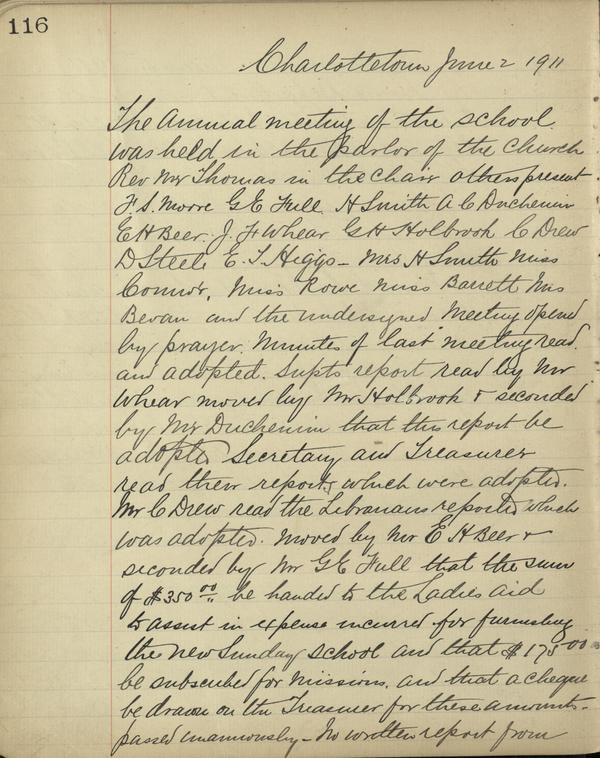 116
Charlottetown June 2 1911
The Annual meeting of the school
was held in the parlor of the Church
Rev Mr Thomas in the Chair others present
F. S. Moore G E Full H Smith A C Duchemin
E H Beer. J. F Whear G H Holbrook C Drew
D Steele E. T. Higgs - Mrs H Smith Miss
Connor, Miss Rowe Miss Barrett Mrs
Bevan and the undersigned Meeting opened
by prayer. Minutes of last meeting read.
and adopted. Supts report read by Mr
Whear moved by Mr Holbrook & seconded
by Mr Duchemin that this report be
adopted Secretary and Treasurer
read their reports which were adopted.
Mr C Drew read the Librarians reported which
was adopted. Moved by Mr E H Beer &
seconded by Mr G E Full that the sum
of $350 00 be handed to the Ladies Aid
to assist in expense incurred for furnishing
the New Sunday school and that $175 00
be subscribed for Missions. and that a cheque
be drawn on the Treasurer for these amounts -
passed unanimously - No written report from